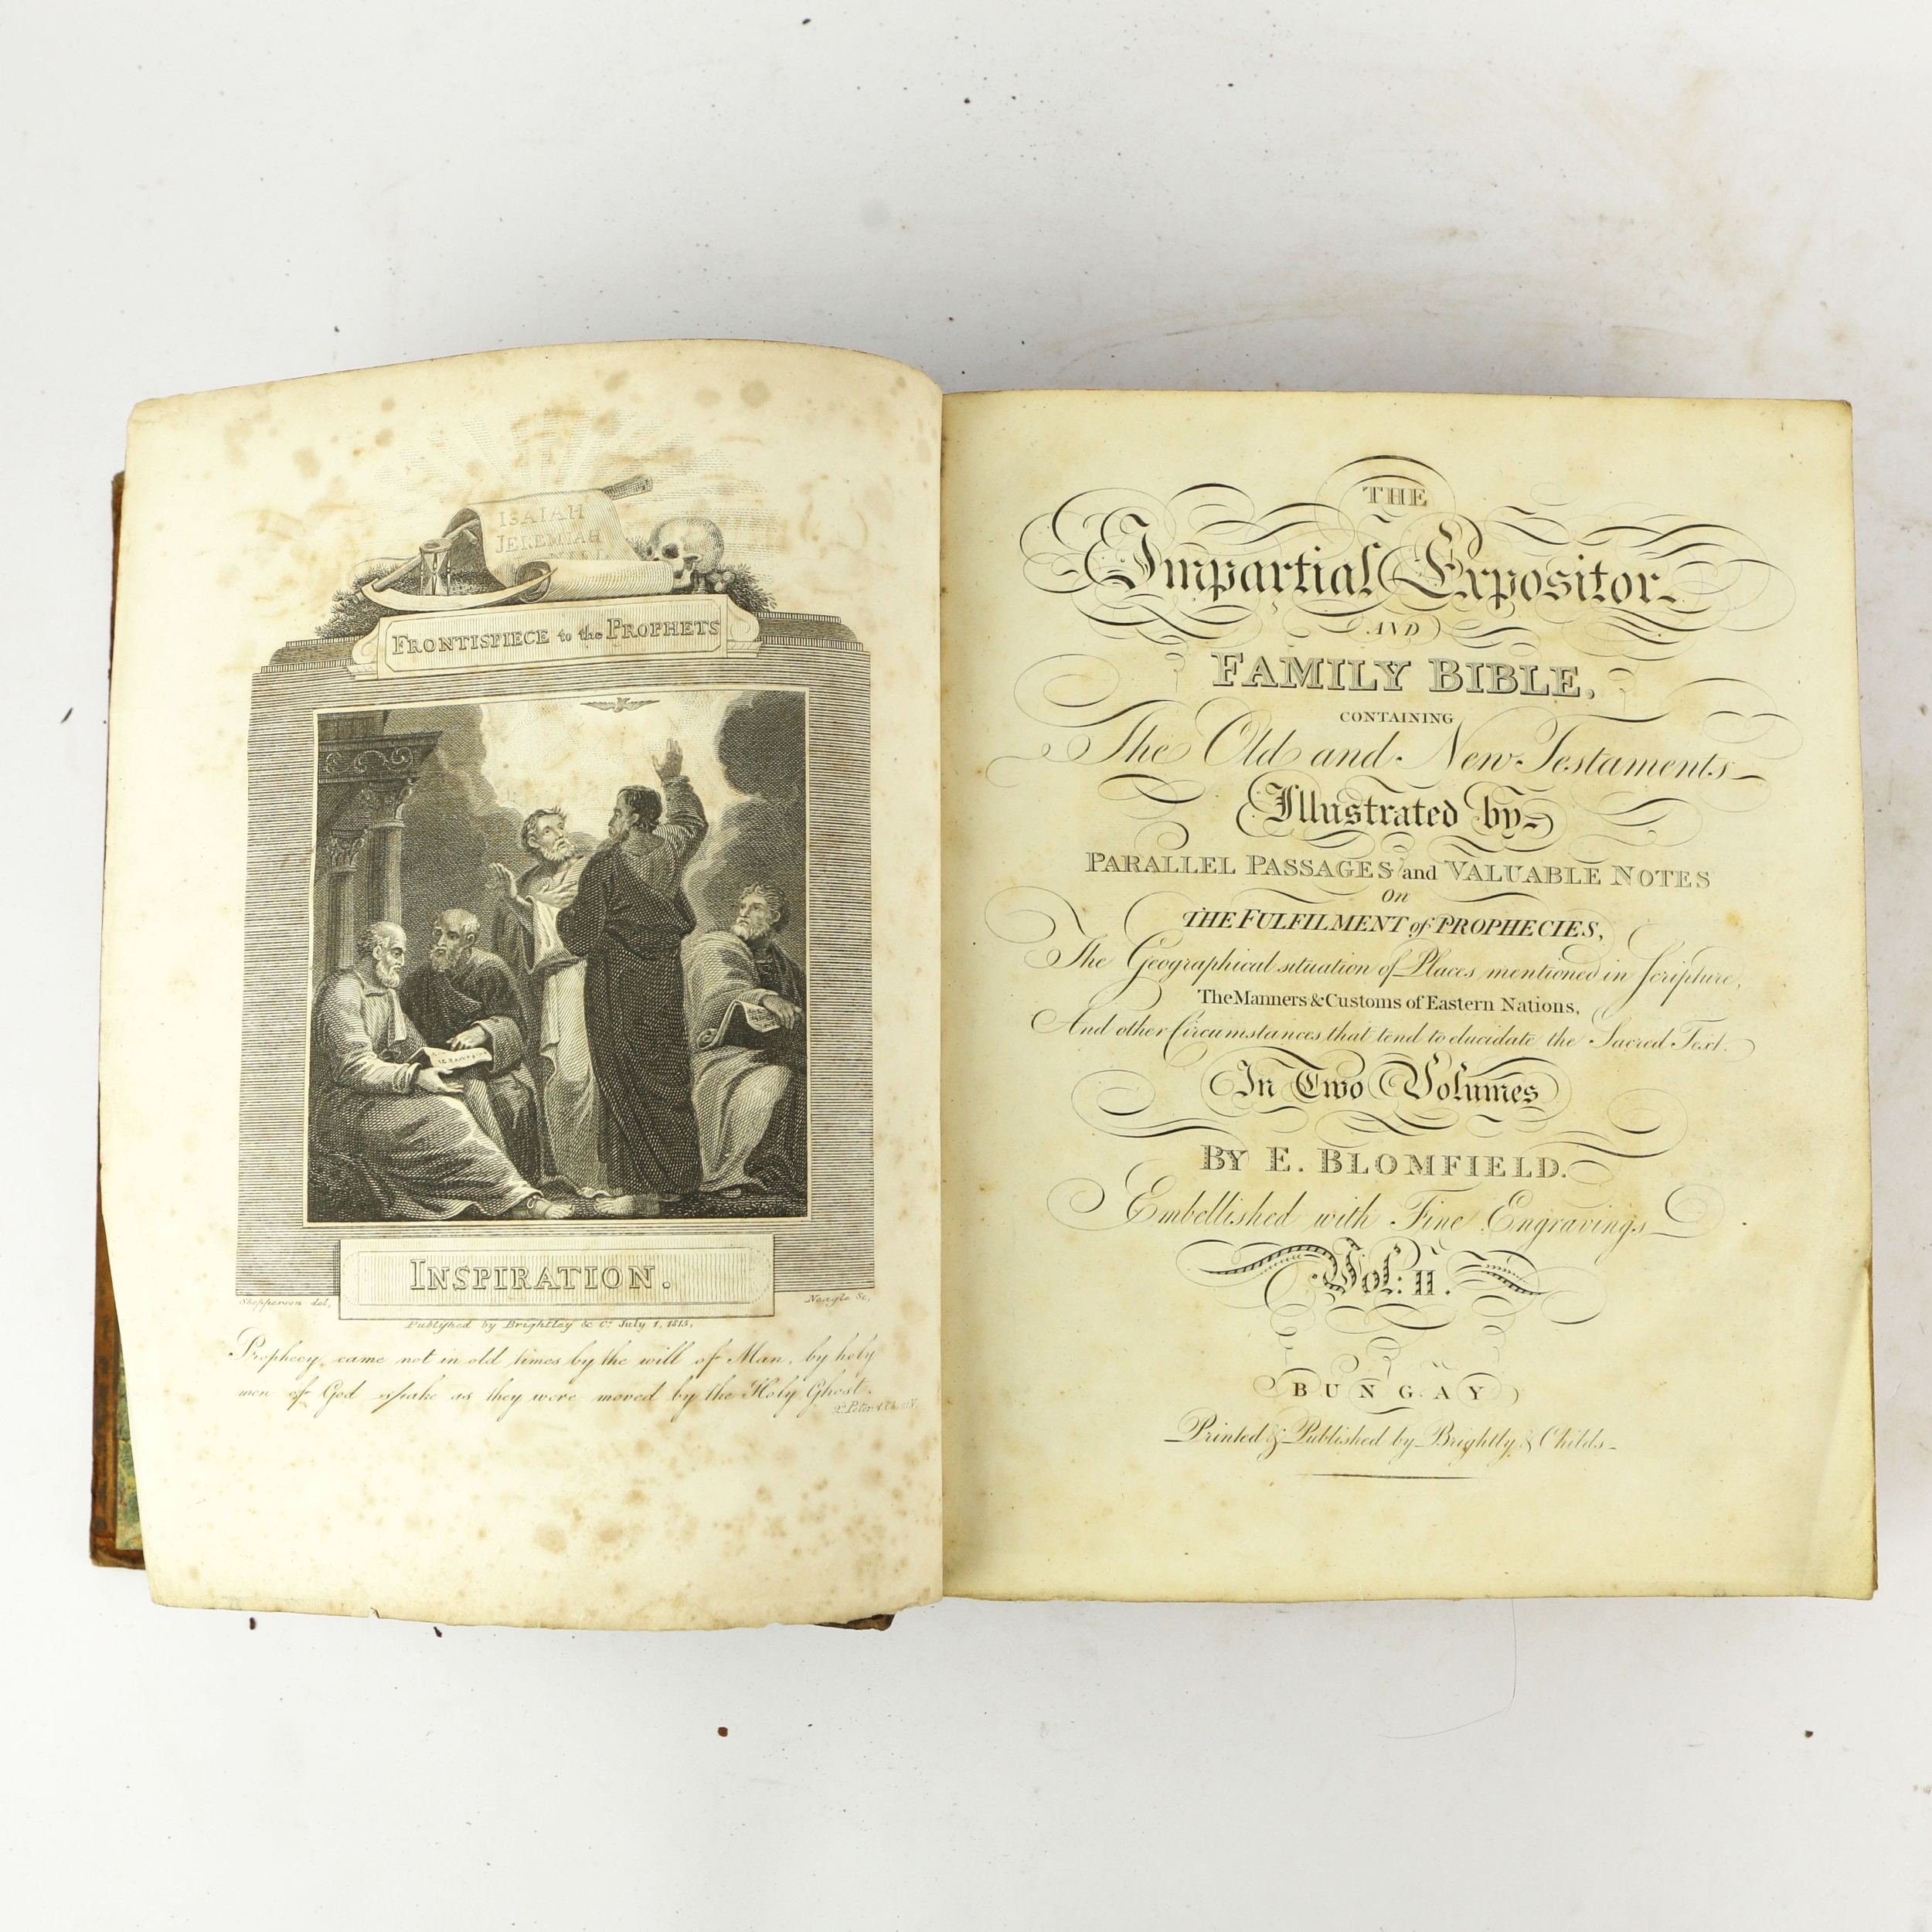 ISAIAH
JEREMIAH
FRONTISPIECE to the PROPHETS
INSPIRATION.
Shepperson del, Neagle Sc.
Published by Brightley & Co. July 1, 1813,
Prophecy, came not in old times by the will of Man, by holy
men of God spake as they were moved by the Holy Ghost.
2. Peter
THE
Impartial Expositor
AND
FAMILY BIBLE,
CONTAINING
The Old and New Testaments
Illustrated by
PARALLEL PASSAGES and VALUABLE NOTES
On
THE FULFILMENT of PROPHECIES,
The Geographical situation of Places mentioned in Scripture,
The Manners & Customs of Eastern Nations,
And other Circumstances that tend to elucidate the Sacred Text.
In Two Volumes
BY E. BLOMFIELD.
Embellished with Fine Engravings
Vol: II.
BUNGAY
Printed & Published by Brightly & Childs